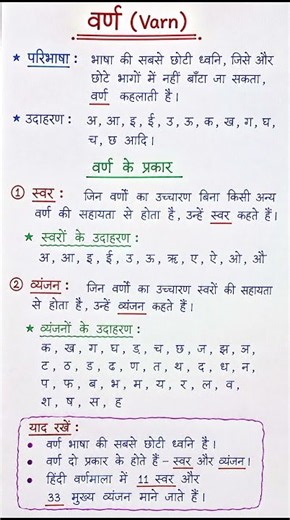 वर्ण (Varn)
★ परिभाषा : भाषा की सबसे छोटी ध्वनि, जिसे और
छोटे भागों में नहीं बाँटा जा सकता,
वर्ण कहलाती है।
★ उदाहरण : अ, आ, इ, ई, उ, ऊ, क, ख, ग, घ,
च, छ आदि।
वर्ण के प्रकार
① स्वर : जिन वर्णों का उच्चारण बिना किसी अन्य
वर्ण की सहायता से होता है, उन्हें स्वर कहते हैं।
★ स्वरों के उदाहरण :
अ, आ, इ, ई, उ, ऊ, ऋ, ए, ऐ, ओ, औ
② व्यंजन : जिन वर्णों का उच्चारण स्वरों की सहायता
से होता है, उन्हें व्यंजन कहते हैं।
★ व्यंजनों के उदाहरण :
क, ख, ग, घ, ङ, च, छ, ज, झ, ञ,
ट, ठ, ड, ढ, ण, त, थ, द, ध, न,
प, फ, ब, भ, म, य, र, ल, व,
श, ष, स, ह
याद रखें :
• वर्ण भाषा की सबसे छोटी ध्वनि है।
• वर्ण दो प्रकार के होते हैं – स्वर और व्यंजन।
• हिंदी वर्णमाला में 11 स्वर और
33 मुख्य व्यंजन माने जाते हैं।